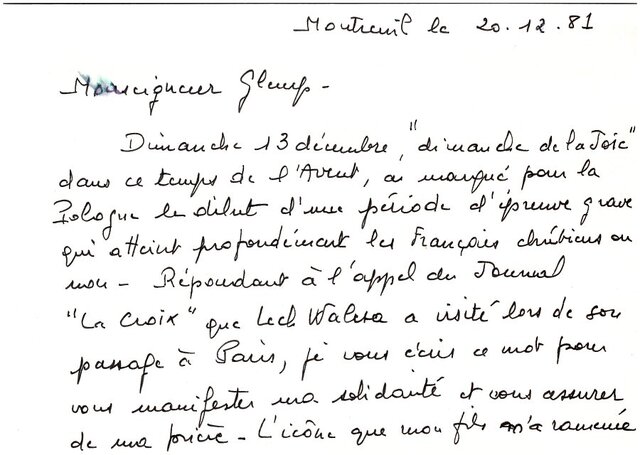 Montreuil le 20.12.81
Monseigneur Glemp -
Dimanche 13 décembre, "dimanche de la Joie"
dans ce temps de l'Avent, a marqué pour la
Pologne le début d'une période d'épreuve grave
qui atteint profondément les Français chrétiens ou
non - Répondant à l'appel du Journal
"La Croix" que Lech Walesa a visité lors de son
passage à Paris, je vous écris ce mot pour
vous manifester ma solidarité et vous assurer
de ma prière - L'icône que mon fils m'a ramenée